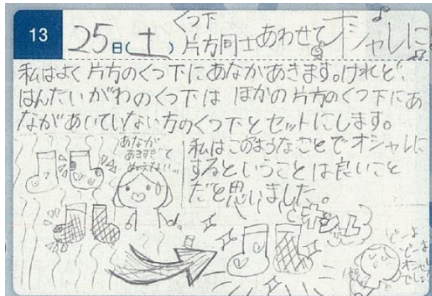 13
25日(土)
くつ下
片方同士あわせてオシャレに♪
私はよく片方のくつ下にあながあきます。けれど、
はんたいがわのくつ下は ほかの片方のくつ下にあ
ながあいていない方のくつ下とセットにします。
私はこのようなことでオシャレに
するということは良いこと
だと思いました。
あなが